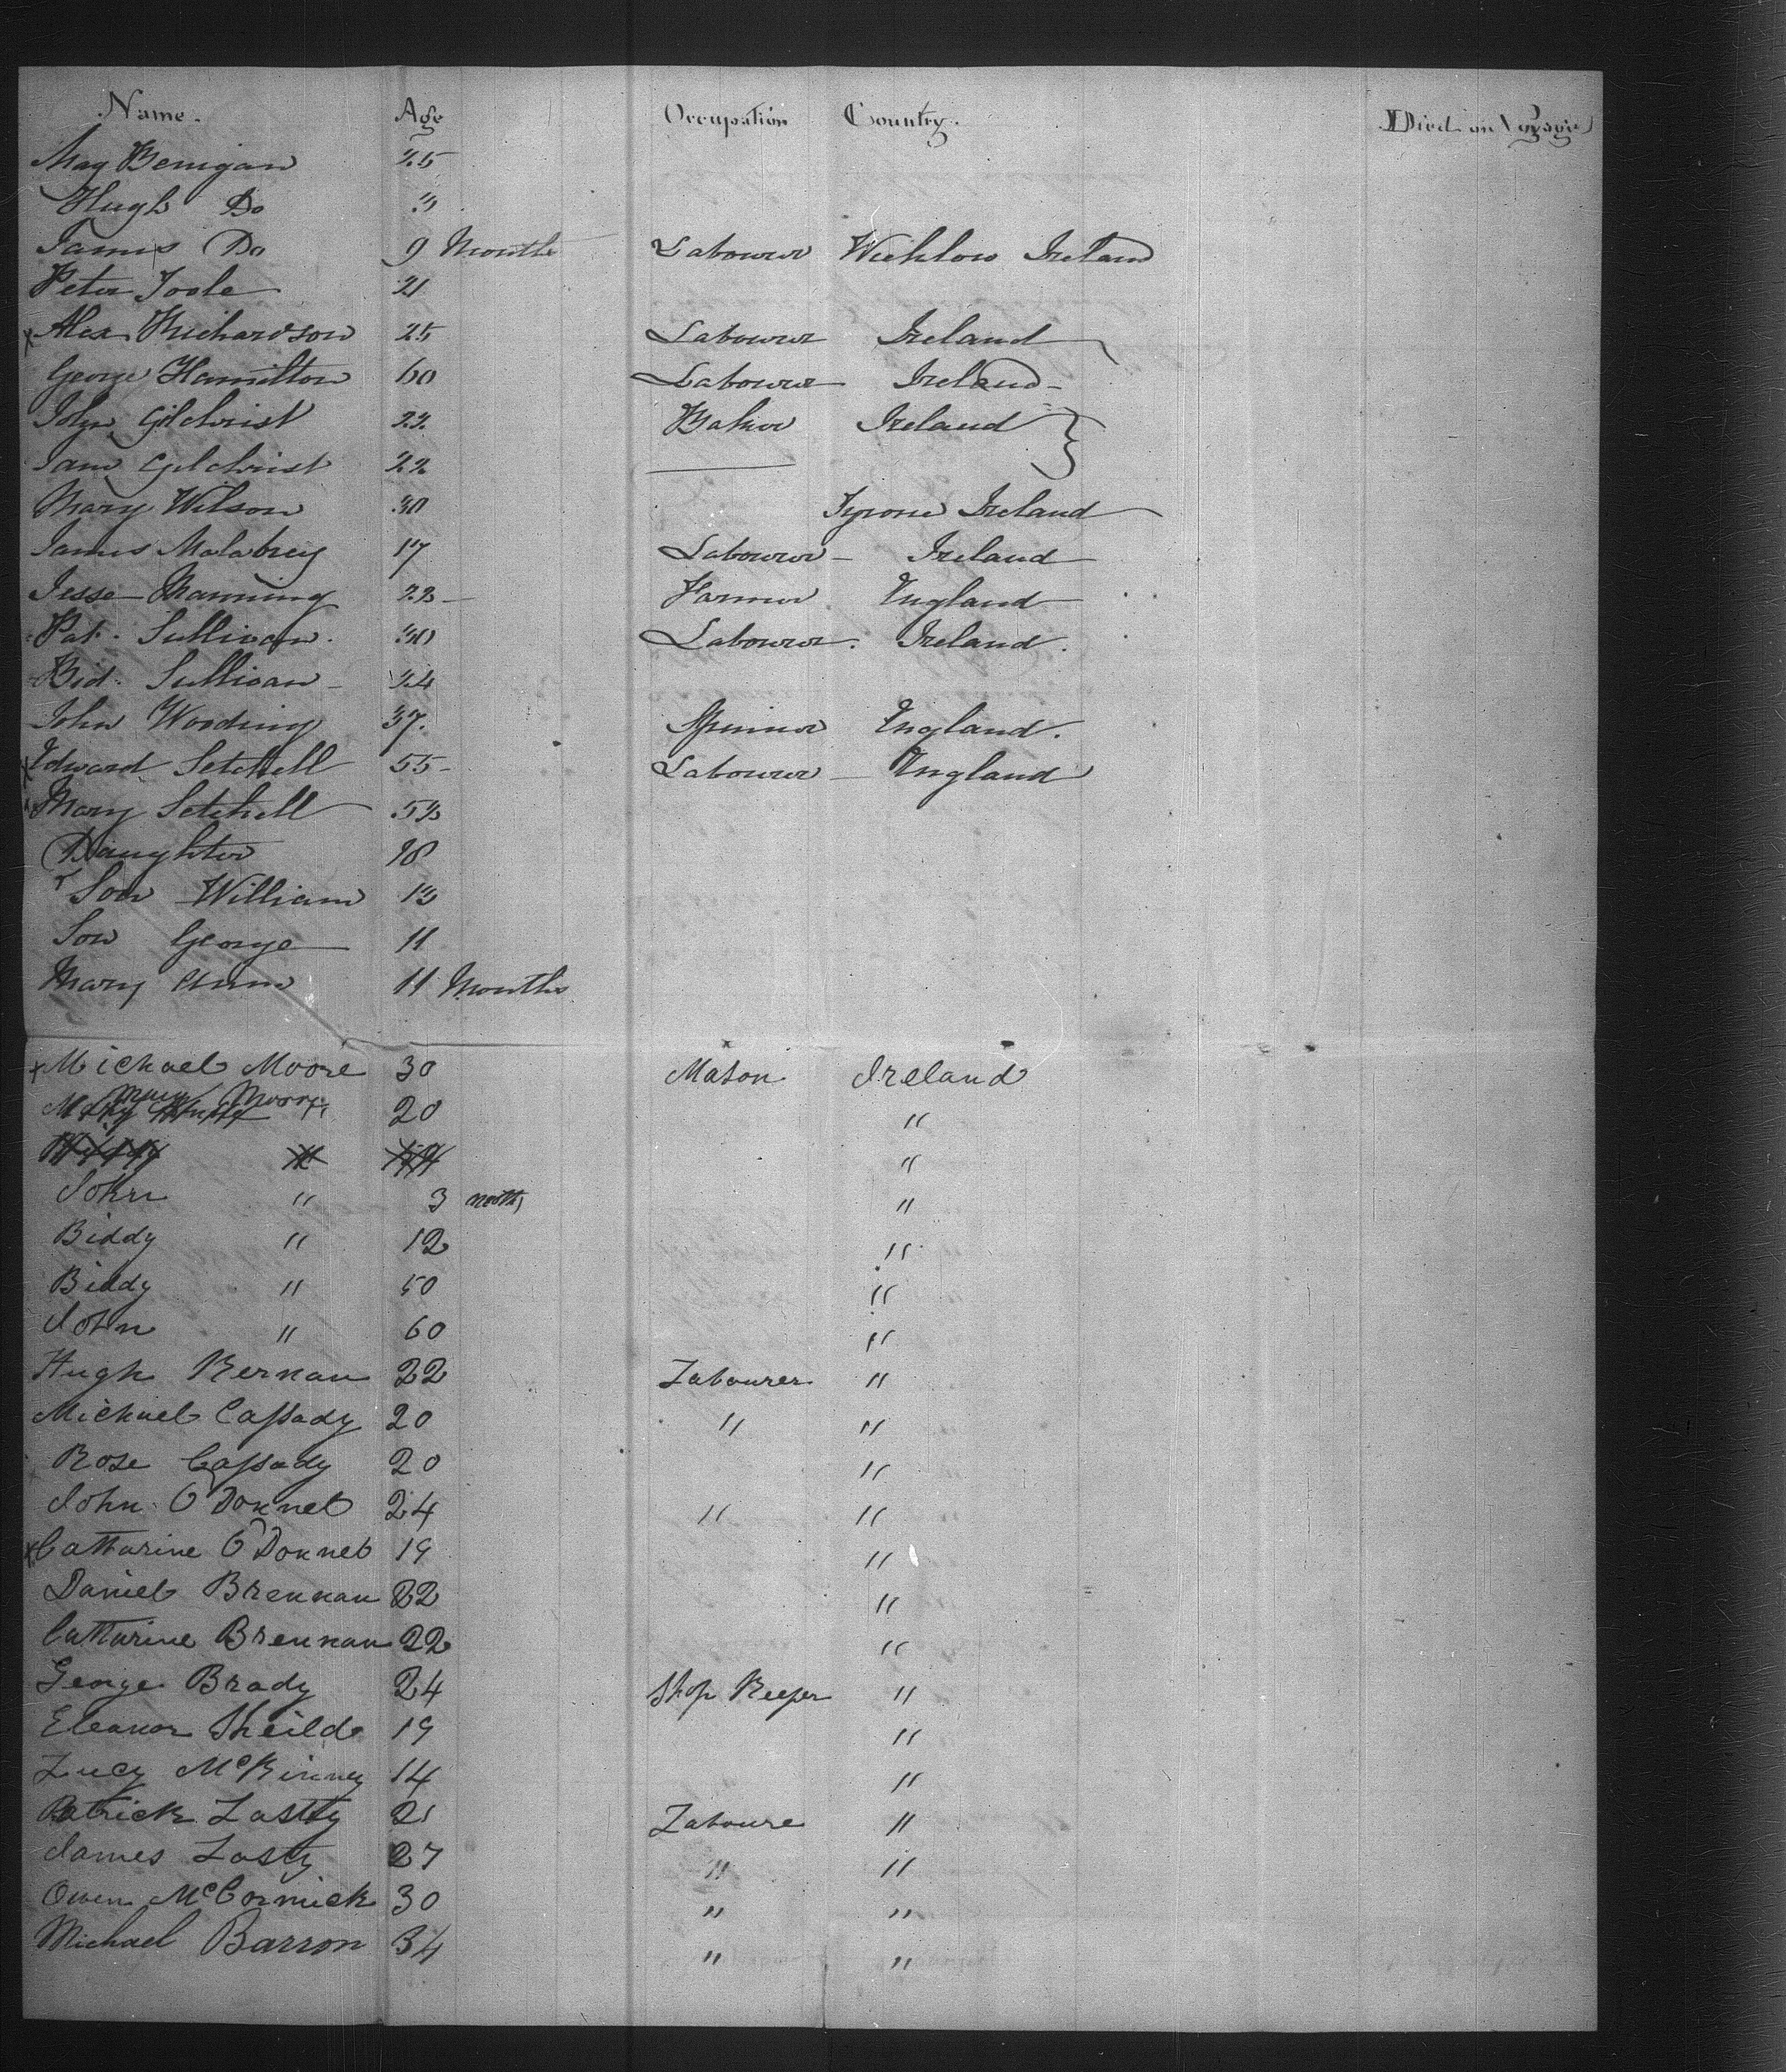 Name. Age Occupation Country. Died on Voyage
Mag Benigan 25
Hugh Do 3
James Do 9 Months Labourer Wicklow Ireland
Peter Toole 21
x Alex Richardson 25 Labourer Ireland
George Hamilton 60 Labourer Ireland
John Gilchrist 23 Baker Ireland
Jane Gilchrist 22
Mary Wilson 30 Tyrone Ireland
James Malabrey 17 Labourer Ireland
Jesse Manning 23 Farmer England
Pat. Sullivan. 30 Labourer. Ireland.
Bid. Sullivan 24
John Wooding 37. Spinner England.
x Edward Setchell 55 Labourer England
x Mary Setchell 53
Daughter 18
Son William 13
Son George 11
Mary Ann 11 Months
x Michael Moore 30 Mason Ireland
Mary Moore
20 "
"
John " 3 months "
Biddy " 12 "
Biddy " 50 "
John " 60 "
Hugh Kernan 22 Labourer "
Michael Cassady 20 " "
Rose Cassady 20 "
John O'Donnel 24 " "
x Catharine O'Donnel 19 "
Daniel Brennan 22 "
Catharine Brennan 22 "
George Brady 24 Shop Keeper "
Eleanor Sheilds 19 "
Lucy McKinney 14 "
Patrick Lasty 21 Laboure "
James Lasty 27 " "
Owen McCormick 30 " "
Michael Barron 34 " "